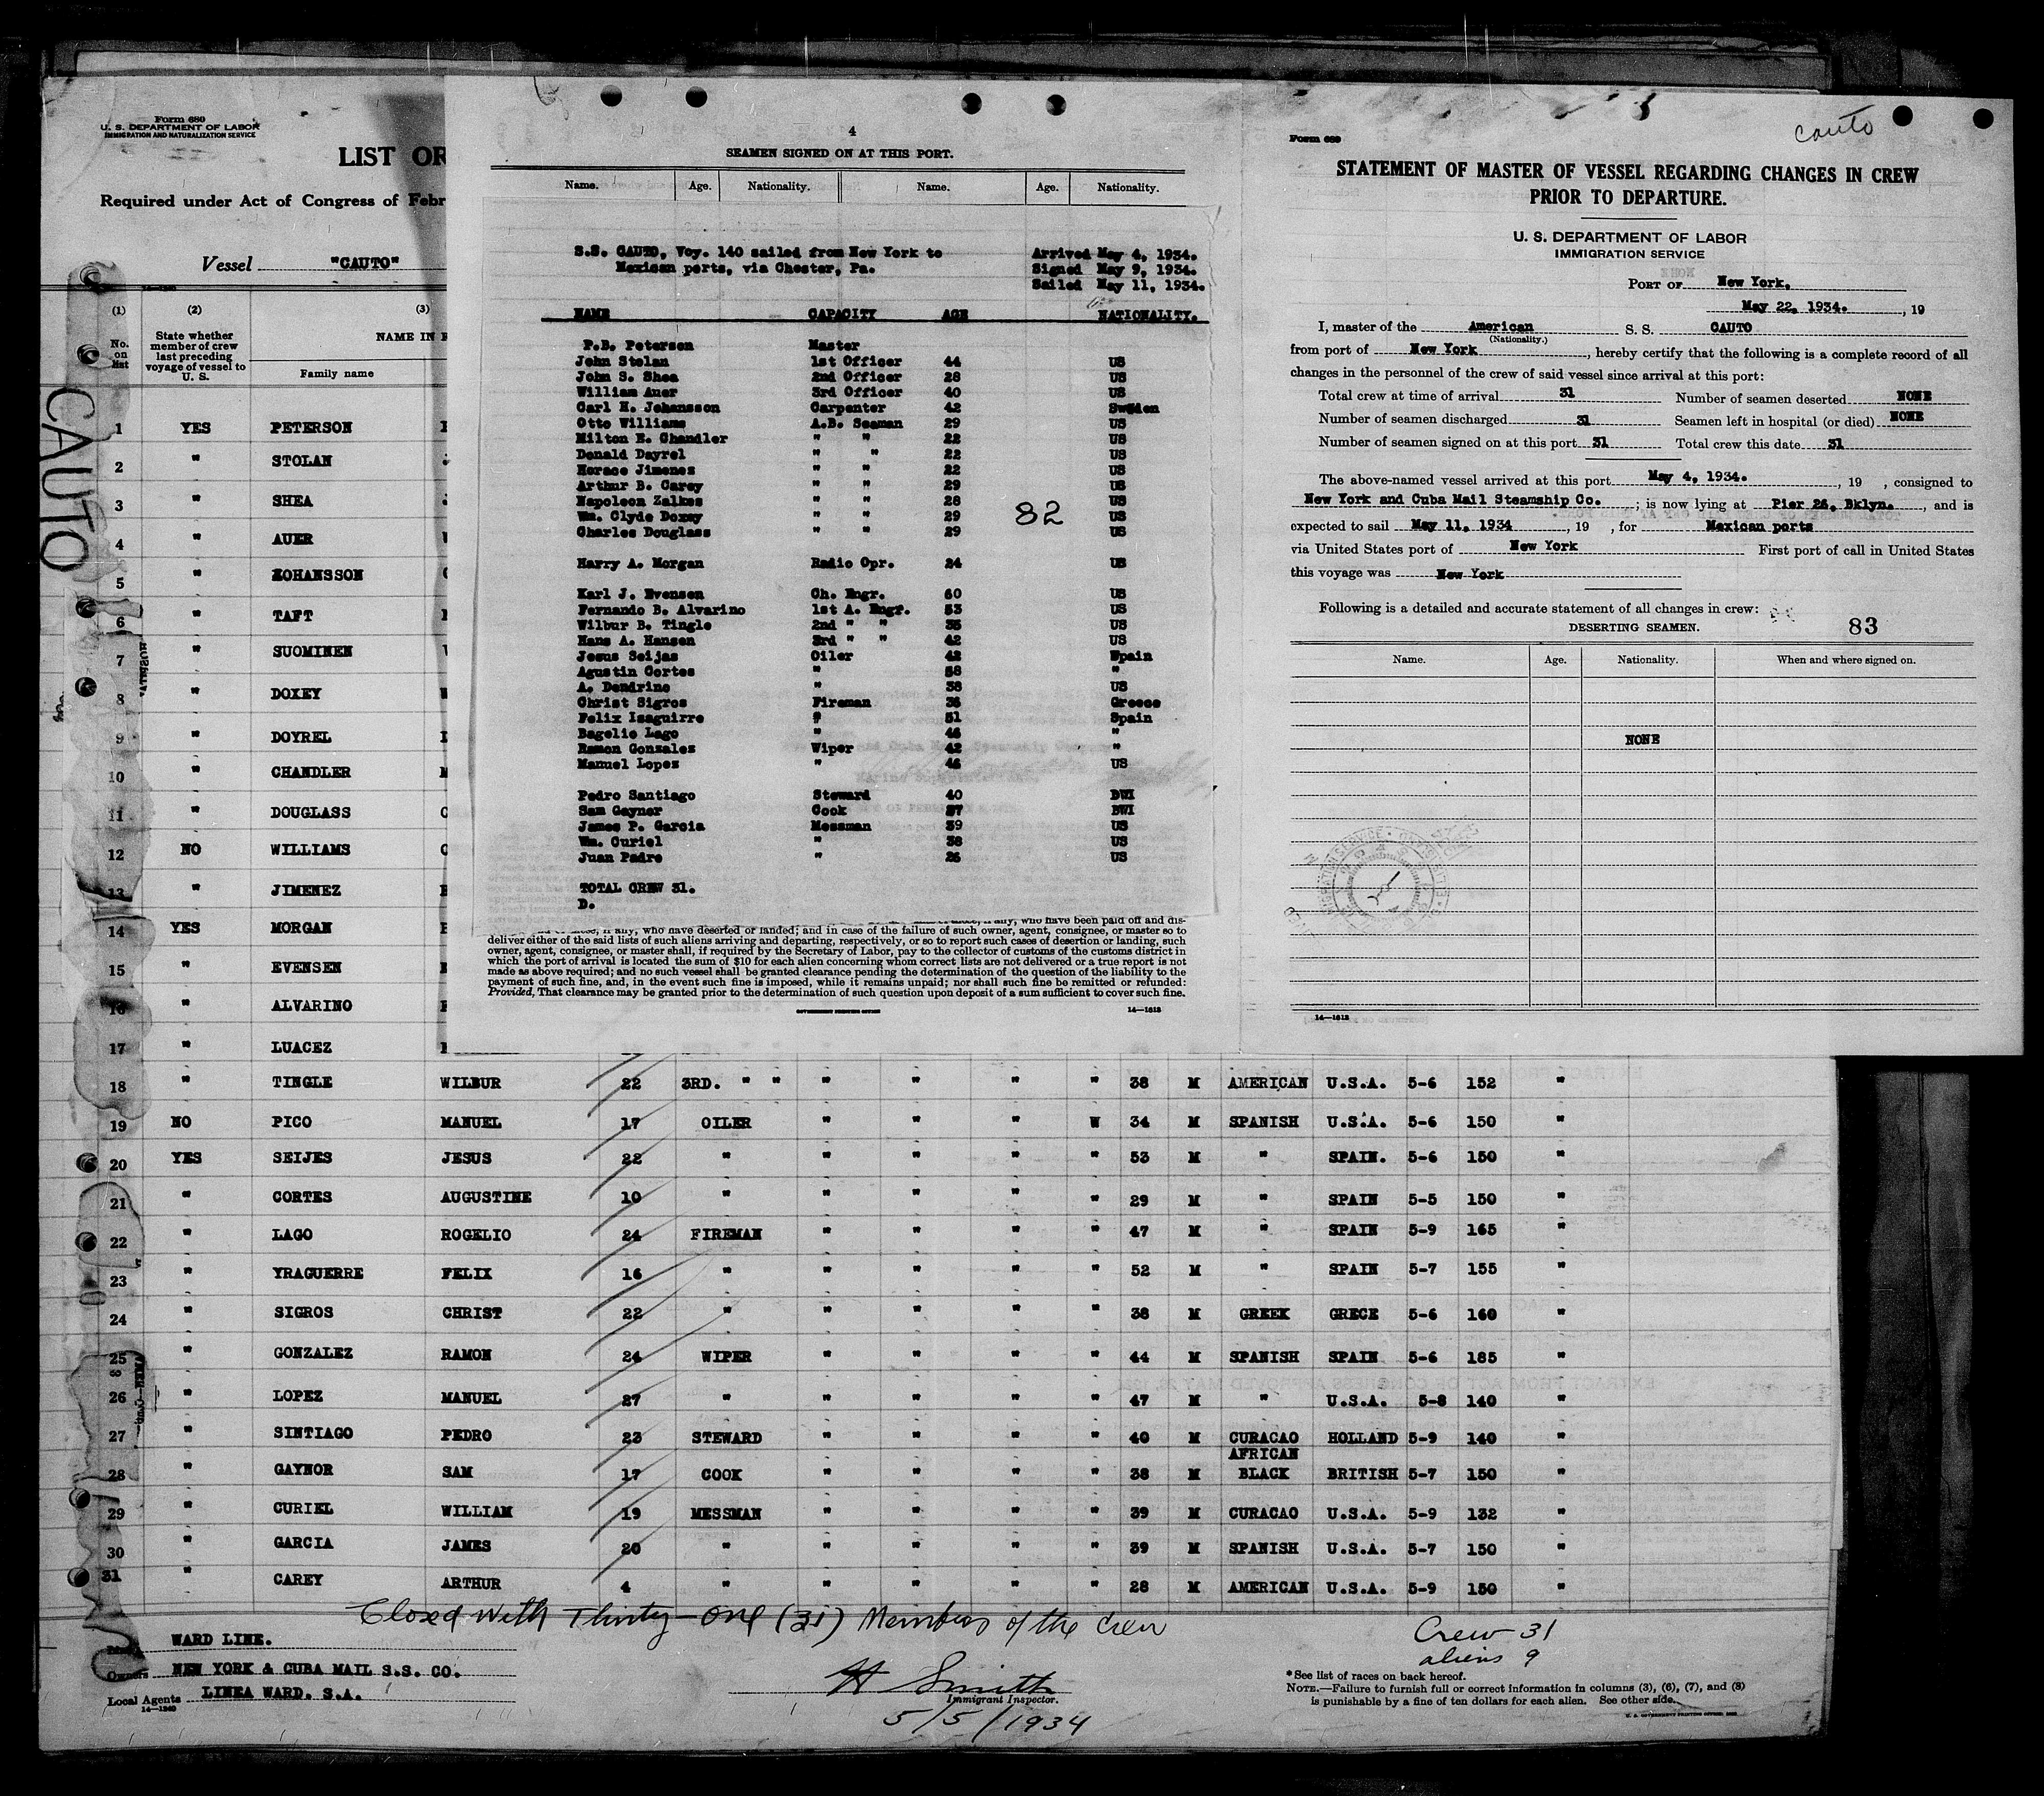 Form 680
U. S. DEPARTMENT OF LABOR
IMMIGRATION AND NATURALIZATION SERVICE
LIST OR
Required under Act of Congress of Febr
Vessel "CAUTO"
CAUTO
(1) (2) (3)
No. on list State whether member of crew last preceding voyage of vessel to U. S. NAME IN
Family name
1 YES PETERSON
2 " STOLAN
3 " SHEA
4 " AUER
5 " ZOHANSSON
6 " TAFT
7 " SUOMINEN
8 " DOXEY
9 " DOYREL
10 " CHANDLER
11 " DOUGLASS
12 NO WILLIAMS
13 " JIMENEZ
14 YES MORGAN
15 " EVENSEN
16 " ALVARINO
17 " LUACEZ
18 " TINGLE WILBUR 22 3RD. " " " " " 38 M AMERICAN U.S.A. 5-6 152 "
19 NO PICO MANUEL 17 OILER " " " W 34 M SPANISH U.S.A. 5-6 150 "
20 YES SEIJES JESUS 22 " " " " " 53 M " SPAIN. 5-6 150 "
21 " CORTES AUGUSTINE 10 " " " " " 29 M " SPAIN 5-5 150 "
22 " LAGO ROGELIO 24 FIREMAN " " " " 47 M " SPAIN 5-9 165 "
23 " YRAGUERRE FELIX 16 " " " " " 52 M " SPAIN 5-7 155 "
24 " SIGROS CHRIST 22 " " " " " 38 M GREEK GRECE 5-6 160 "
25 " GONZALEZ RAMON 24 WIPER " " " " 44 M SPANISH SPAIN 5-6 185 "
26 " LOPEZ MANUEL 27 " " " " " 47 M " U.S.A. 5-8 140 "
27 " SINTIAGO PEDRO 23 STEWARD " " " " 40 M CURACAO HOLLAND 5-9 140 "
28 " GAYNOR SAM 17 COOK " " " " 38 M AFRICAN BLACK BRITISH 5-7 150 "
29 " CURIEL WILLIAM 19 MESSMAN " " " " 39 M CURACAO U.S.A. 5-9 132 "
30 " GARCIA JAMES 20 " " " " " 39 M SPANISH U.S.A. 5-7 150 "
31 " CAREY ARTHUR 4 " " " " " 28 M AMERICAN U.S.A. 5-9 150 "
Closed with Thirty-one (31) Members of the Crew
WARD LINE.
Owners NEW YORK & CUBA MAIL S.S. CO.
Local Agents LINEA WARD. S.A.
14—1240
H Smith
Immigrant Inspector.
5/5/1934
Crew 31
aliens 9
*See list of races on back hereof.
NOTE.—Failure to furnish full or correct information in columns (3), (6), (7), and (8)
is punishable by a fine of ten dollars for each alien. See other side.
4
SEAMEN SIGNED ON AT THIS PORT.
Name. Age. Nationality. Name. Age. Nationality.
S.S. CAUTO, Voy. 140 sailed from New York to
Mexican ports, via Chester, Pa.
Arrived May 4, 1934.
Signed May 9, 1934.
Sailed May 11, 1934.
NAME CAPACITY AGE NATIONALITY.
P.B. Peterson Master
John Stolan 1st Officer 44 US
John S. Shea 2nd Officer 28 US
William Auer 3rd Officer 40 US
Carl H. Johansson Carpenter 42 Sweden
Otto Williams A.B. Seaman 29 US
Milton E. Chandler " " 22 US
Donald Dayrel " " 22 US
Horace Jimenez " " 22 US
Arthur B. Carey " " 29 US
Napoleon Zalkas " " 28 US
Wm. Clyde Doxey " " 29 US
Charles Douglass " " 29 US
82
Harry A. Morgan Radio Opr. 24 US
Karl J. Evensen Ch. Engr. 60 US
Fernando B. Alvarino 1st A. Engr. 53 US
Wilbur B. Tingle 2nd " " 35 US
Hans A. Hansen 3rd " " 42 US
Jesus Seijas Oiler 42 Wpain
Agustin Cortes " 58 "
A. Dendrino " 38 US
Christ Sigros Fireman 36 Greece
Felix Isaguirre " 51 Spain
Bagelio Lago " 46 "
Ramon Gonzalez Wiper 42 "
Manuel Lopez " 46 US
Pedro Santiago Steward 40 DWI
Sam Gaynor Cook 37 BWI
James P. Garcia Messman 39 US
Wm. Curiel " 38 US
Juan Padro " 26 US
TOTAL CREW 31.
D.
if any, who have been paid off and dis-
if any, who have deserted or landed; and in case of the failure of such owner, agent, consignee, or master so to
deliver either of the said lists of such aliens arriving and departing, respectively, or so to report such cases of desertion or landing, such
owner, agent, consignee, or master shall, if required by the Secretary of Labor, pay to the collector of customs of the customs district in
which the port of arrival is located the sum of $10 for each alien concerning whom correct lists are not delivered or a true report is not
made as above required; and no such vessel shall be granted clearance pending the determination of the question of the liability to the
payment of such fine, and, in the event such fine is imposed, while it remains unpaid; nor shall such fine be remitted or refunded:
Provided, That clearance may be granted prior to the determination of such question upon deposit of a sum sufficient to cover such fine.
GOVERNMENT PRINTING OFFICE 14—1613
Form 689
Cauto
STATEMENT OF MASTER OF VESSEL REGARDING CHANGES IN CREW
PRIOR TO DEPARTURE.
U. S. DEPARTMENT OF LABOR
IMMIGRATION SERVICE
PORT OF New York.
May 22, 1934. , 19
I, master of the American S. S. CAUTO
(Nationality.)
from port of New York , hereby certify that the following is a complete record of all
changes in the personnel of the crew of said vessel since arrival at this port:
Total crew at time of arrival 31 Number of seamen deserted NONE
Number of seamen discharged 31 Seamen left in hospital (or died) NONE
Number of seamen signed on at this port 31 Total crew this date 31
The above-named vessel arrived at this port May 4, 1934. , 19 , consigned to
New York and Cuba Mail Steamship Co. ; is now lying at Pier 26, Bklyn. , and is
expected to sail May 11, 1934 , 19 , for Mexican ports
via United States port of New York First port of call in United States
this voyage was New York
Following is a detailed and accurate statement of all changes in crew:
DESERTING SEAMEN.
83
Name. Age. Nationality. When and where signed on.
NONE
14—1613